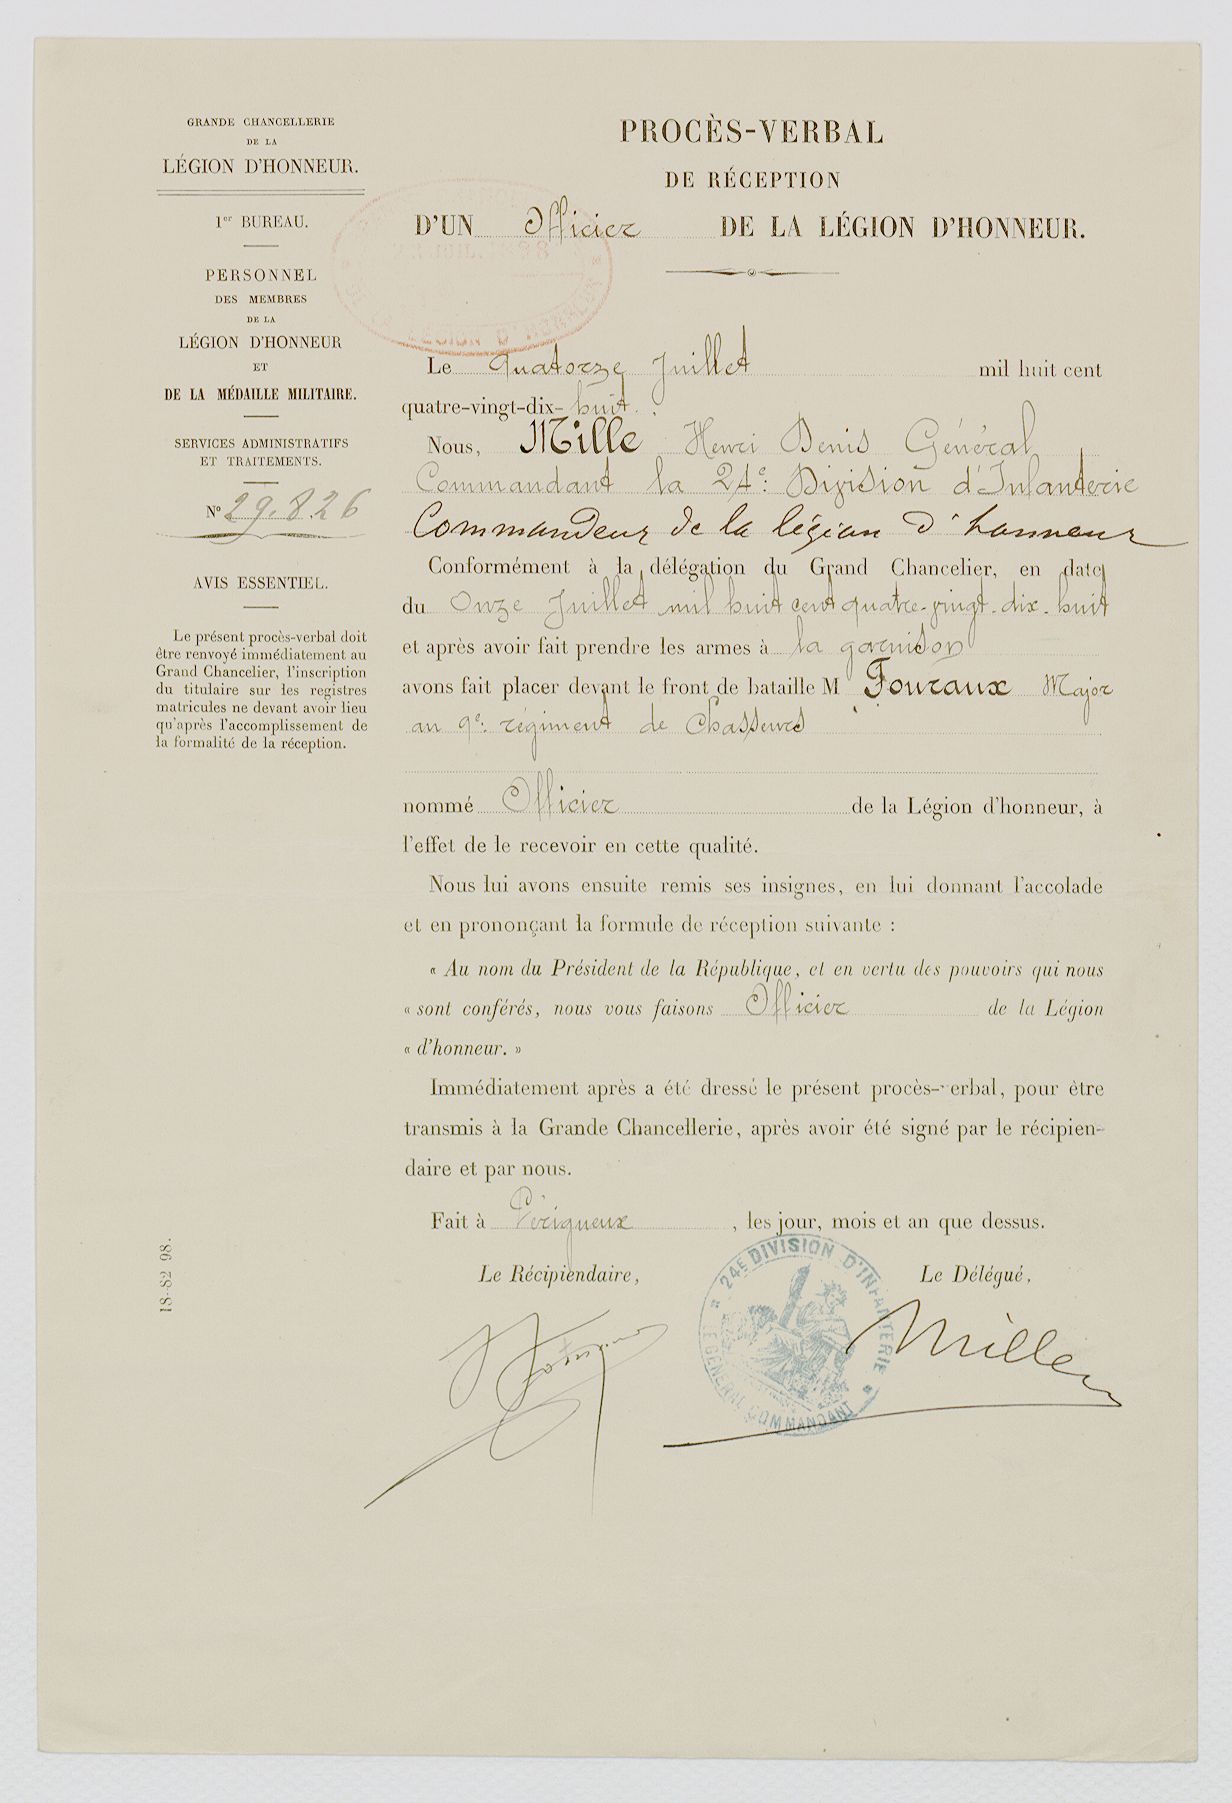 GRANDE CHANCELLERIE
DE LA
LÉGION D'HONNEUR.
1er BUREAU.
PERSONNEL
DES MEMBRES
DE LA
LÉGION D'HONNEUR
ET
DE LA MÉDAILLE MILITAIRE.
SERVICES ADMINISTRATIFS
ET TRAITEMENTS.
N° 29.826
AVIS ESSENTIEL.
Le présent procès-verbal doit
être renvoyé immédiatement au
Grand Chancelier, l'inscription
du titulaire sur les registres
matricules ne devant avoir lieu
qu'après l'accomplissement de
la formalité de la réception.
18-82 98.
PROCÈS-VERBAL
DE RÉCEPTION
D'UN Officier DE LA LÉGION D'HONNEUR.
LA LÉGION D'HONNEUR
Le Quatorze Juillet mil huit cent
quatre-vingt-dix-huit.
Nous, Mille Henri Denis Général
Commandant la 24e Division d'Infanterie
Commandeur de la légion d'honneur
Conformément à la délégation du Grand Chancelier, en date
du Onze Juillet mil huit cent quatre-vingt-dix-huit
et après avoir fait prendre les armes à la garnison
avons fait placer devant le front de bataille M Fouraux Major
au 9e régiment de Chasseurs
nommé Officier de la Légion d'honneur, à
l'effet de le recevoir en cette qualité.
Nous lui avons ensuite remis ses insignes, en lui donnant l'accolade
et en prononçant la formule de réception suivante :
« Au nom du Président de la République, et en vertu des pouvoirs qui nous
« sont conférés, nous vous faisons Officier de la Légion
« d'honneur. »
Immédiatement après a été dressé le présent procès-verbal, pour être
transmis à la Grande Chancellerie, après avoir été signé par le récipien-
daire et par nous.
Fait à Périgueux, les jour, mois et an que dessus.
Le Récipiendaire, Le Délégué,
24E DIVISION D'INFANTERIE
LE GÉNÉRAL COMMANDANT
Mille